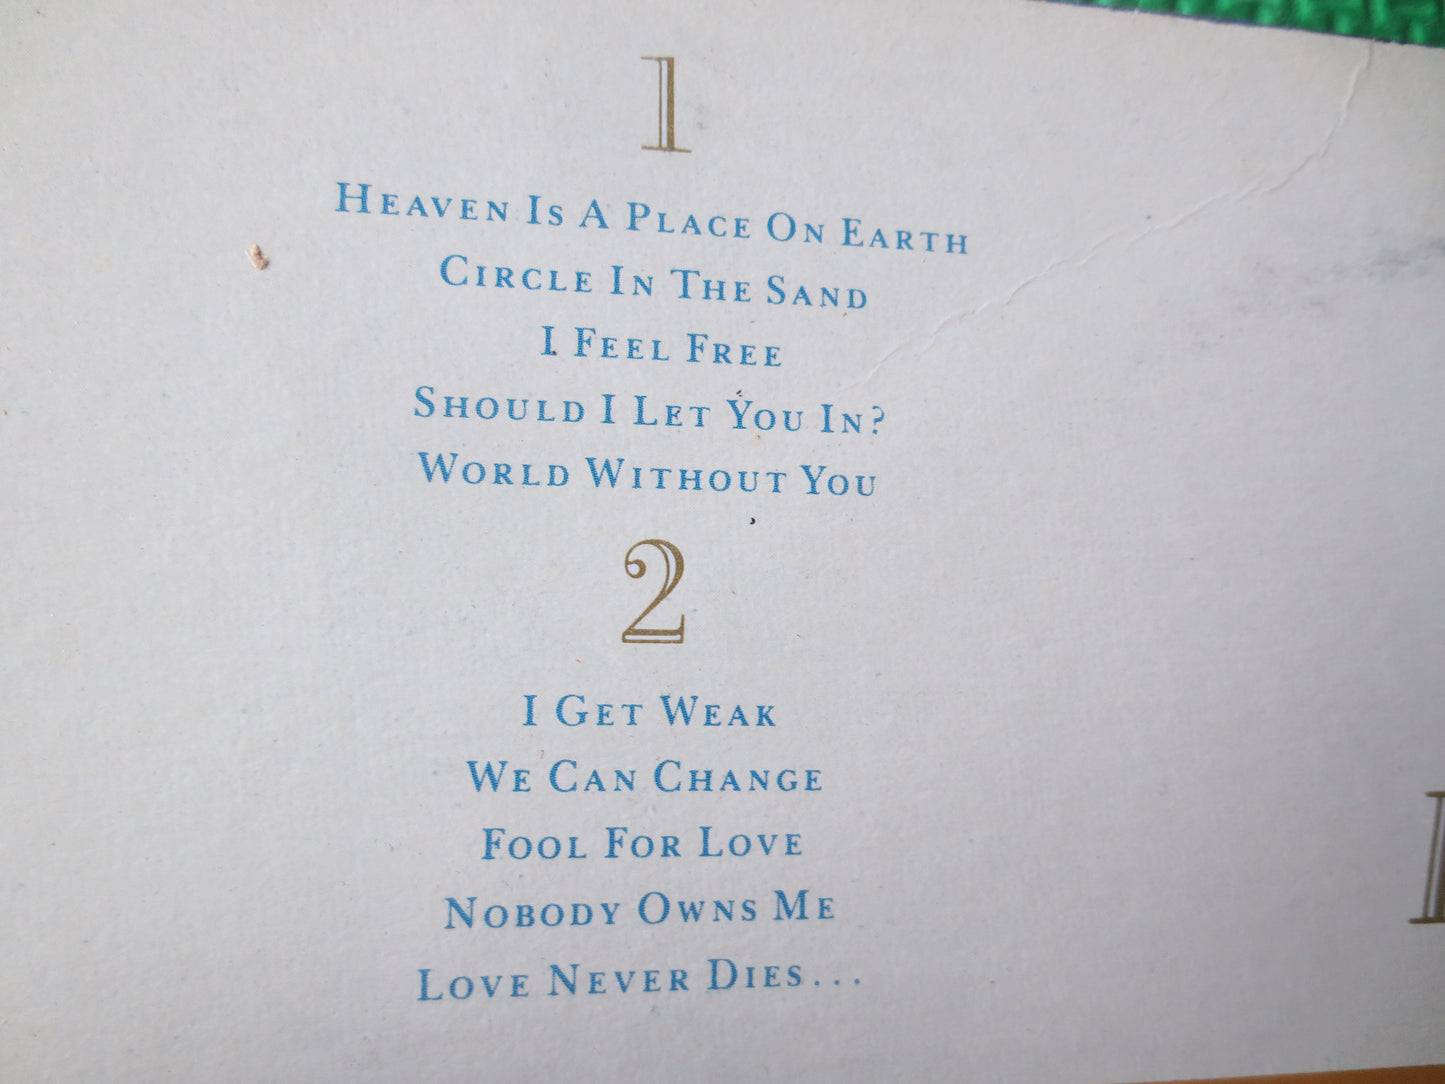 1
Heaven Is A Place On Earth
Circle In The Sand
I Feel Free
Should I Let You In?
World Without You
2
I Get Weak
We Can Change
Fool For Love
Nobody Owns Me
Love Never Dies...